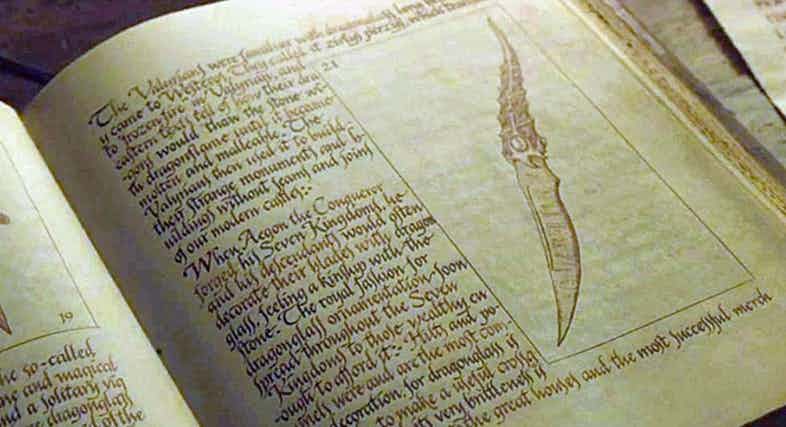 10
he so-called
and magical
and a solitary vig
dragonglass
of the
The Valyrians were familiar with dragonglass long be
came to Westeros. They called it zīrtys perzys, which tran
21
to frozen fire in Valyrian, and
eastern texts tell of how their dra
gons would thaw the stone wi
th dragonflame until it became
molten and malleable. The
Valyrians then used it to build
their strange monuments and b
uildings without seams and joins
of our modern castles:
When Aegon the Conqueror
forged his Seven Kingdoms, he
and his descendants would often
decorate their blades with dragon
glass, feeling a kinship with the
stone. The royal fashion for
dragonglass ornamentation soon
spread throughout the Seven
Kingdoms to those wealthy en
ough to afford it: Hilts and po
mels were and are the most com
decoration, for dragonglass is
to make a useful crossg
its very brittleness is
the great houses and the most successful merch